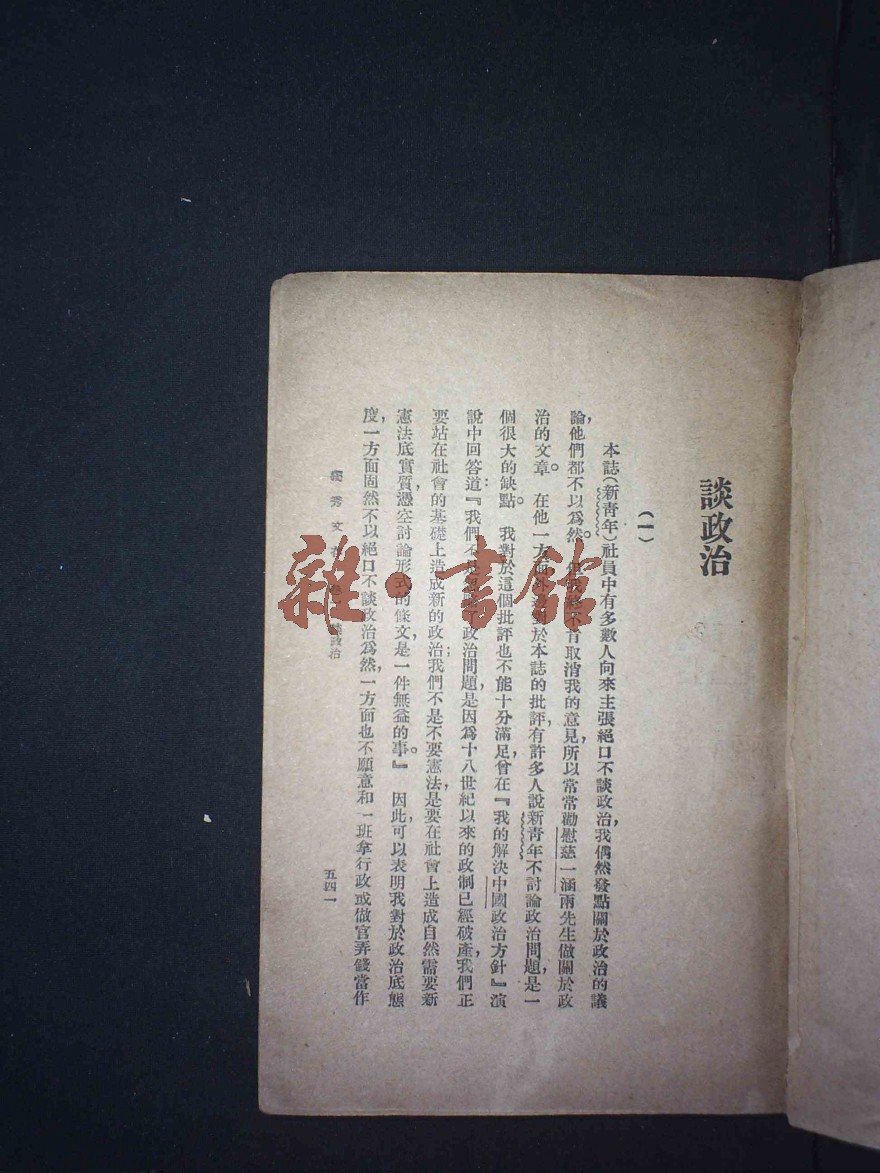 談政治
（一）
本誌（新靑年）社員中有多數人向來主張絕口不談政治，我偶然發點關於政治的議
論，他們都不以爲然。但我終不肯取消我的意見，所以常常勸慰慈一涵兩先生做關於政
治的文章。在他一方面，外對於本誌的批評，有許多人說新靑年不討論政治問題，是一
個很大的缺點。我對於這個批評也不能十分滿足，曾在『我的解決中國政治方針』演
說中回答道：『我們不是忽略了政治問題，是因爲十八世紀以來的政制已經破產，我們正
要站在社會的基礎上造成新的政治；我們不是不要憲法，是要在社會上造成自然需要新
憲法底實質，憑空討論形式的條文，是一件無益的事。』因此，可以表明我對於政治底態
度，一方面固然不以絕口不談政治爲然，一方面也不願意和一班拿行政或做官弄錢當作
獨秀文存 談政治
五四一
雜·書館